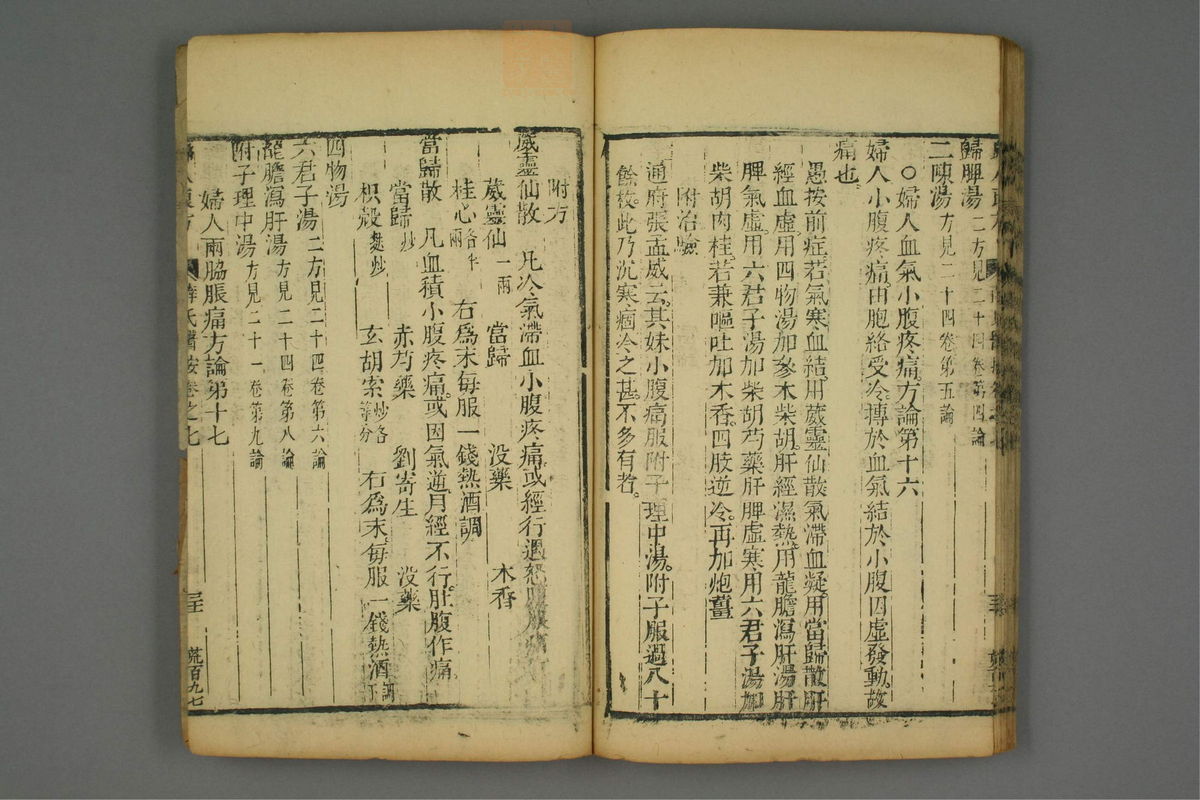 歸脾湯二方見二十四卷第四論
二陳湯方見二十四卷第五論
○婦人血氣小腹疼痛方論第十六
婦人小腹疼痛。由胞絡受冷。摶於血氣結於小腹因虛發動。故
痛也。
愚按前症。若氣寒血結。用葳靈仙散氣滯血凝。用當歸散肝
經血虛用四物湯加參朮柴胡。肝經濕熱。用龍膽瀉肝湯肝
脾氣虛。用六君子湯加柴胡芍藥肝脾虛寒用六君子湯加
柴胡肉桂。若兼嘔吐加木香。四肢逆冷。再加炮薑
附治驗
通府張孟威云。其妹小腹痛服附子理中湯。附子服過八十
餘枚。此乃沉寒痼冷之甚。不多有者。
附方
葳靈仙散 凡冷氣滯血小腹疼痛。或經行過怒
葳靈仙一兩 當歸 沒藥 木香
桂心各半兩 右爲末每服一錢熱酒調
當歸散 凡血積小腹疼痛。或因氣逆月經不行。肚腹作痛。
當歸炒 赤芍藥 劉寄生 沒藥
枳殼麩炒 玄胡索炒各等分 右爲末。每服一錢熱酒調下
四物湯
六君子湯二方見二十四卷第六論
龍膽瀉肝湯方見二十四卷第八論
附子理中湯方見二十一卷第九論
婦人兩脇脹痛方論第十七
婦人良方 薛氏醫按卷之七 荒百九七